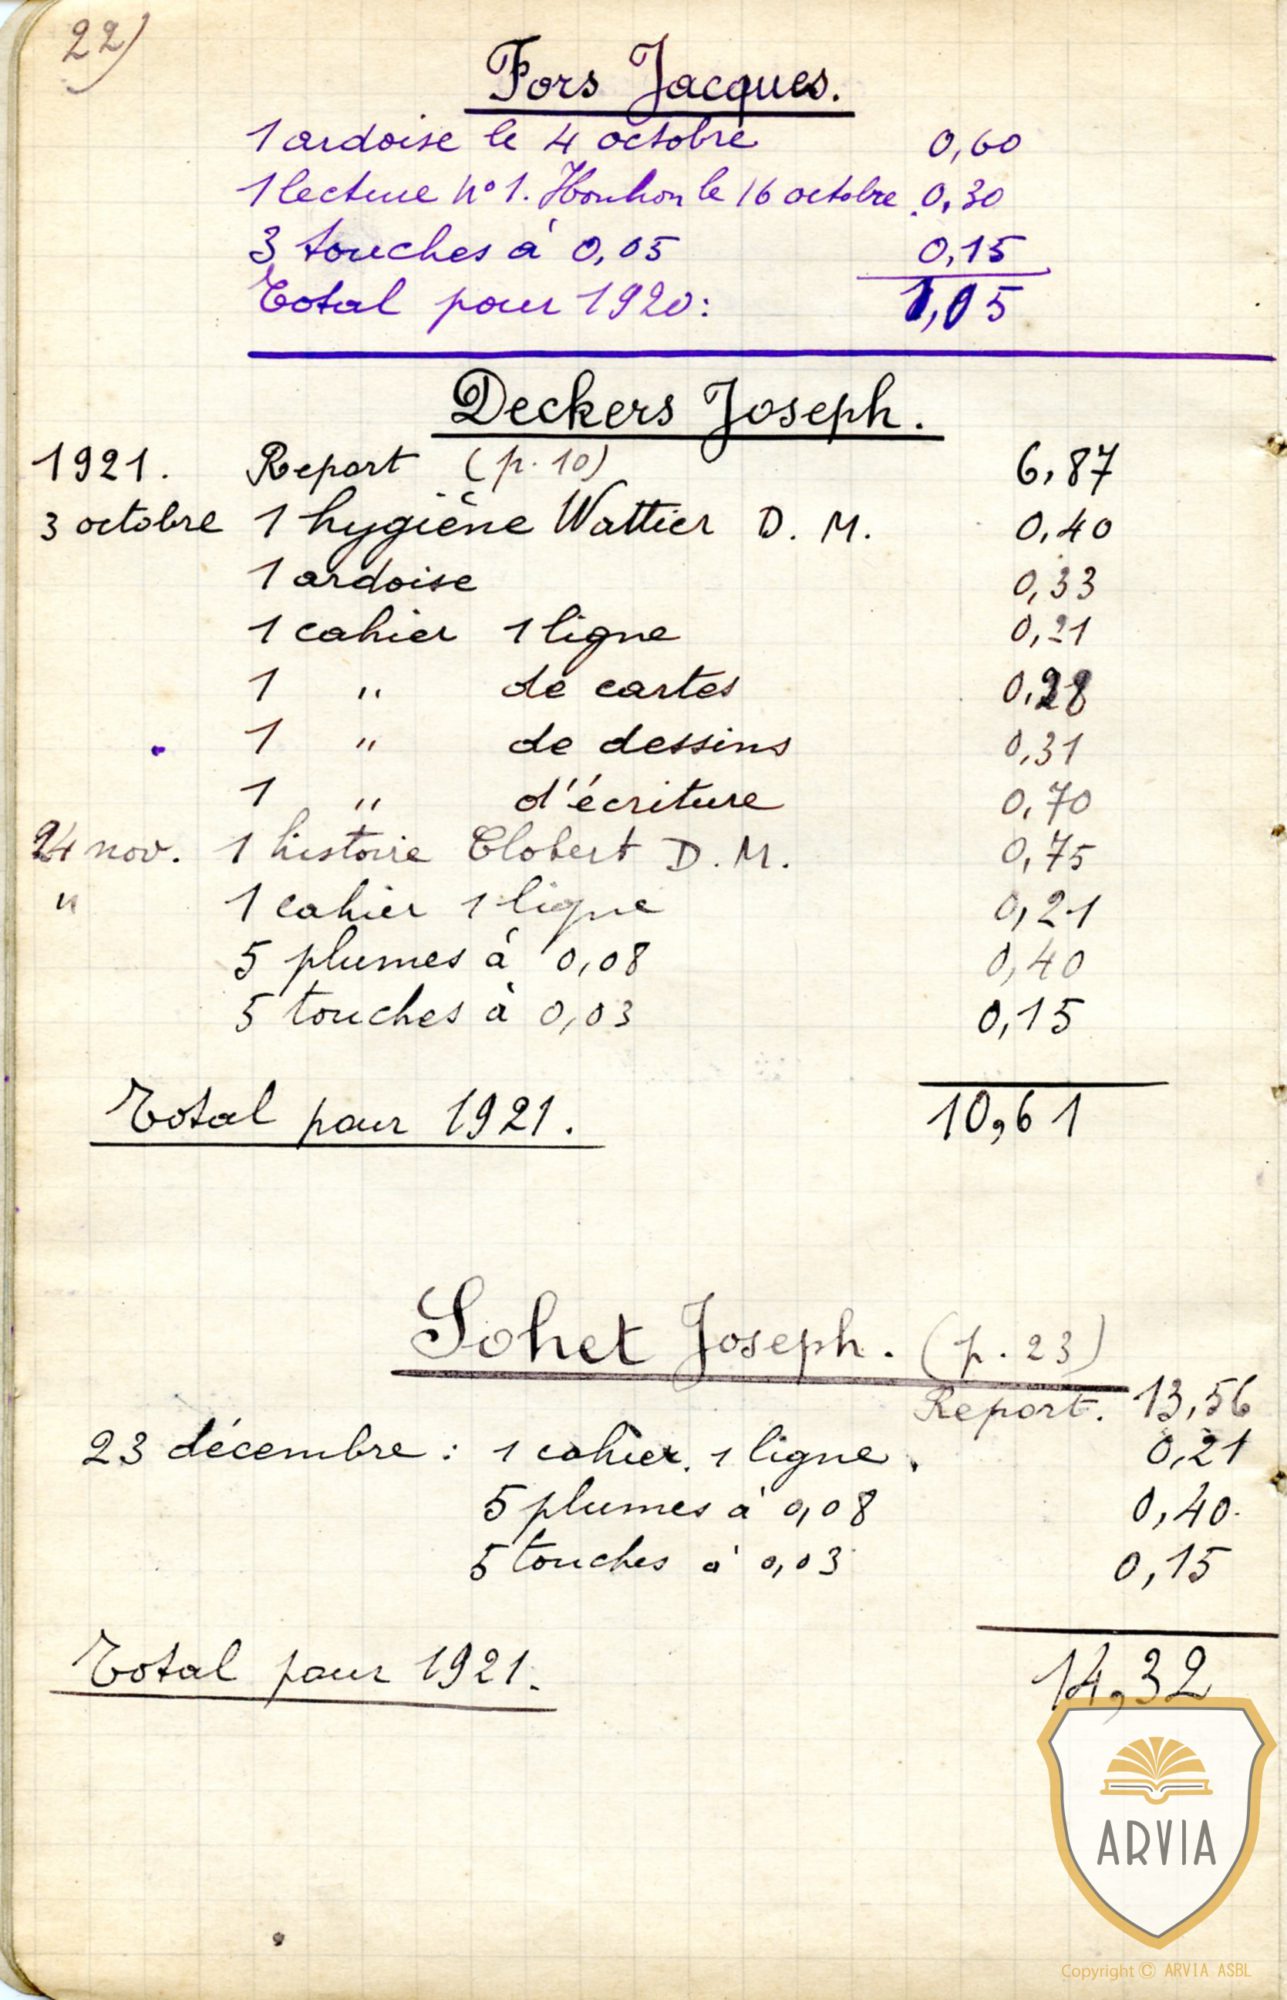 22)
Fors Jacques.
1 ardoise le 4 octobre 0,60
1 lecture n° 1. Houhon le 16 octobre. 0,30
3 touches à 0,05 0,15
Total pour 1920: 1,05
Deckers Joseph.
1921. Report (p. 10) 6,87
3 octobre 1 hygiène Wattier D. M. 0,40
1 ardoise 0,33
1 cahier 1 ligne 0,21
1 " de cartes 0,28
1 " de dessins 0,31
1 " d'écriture 0,70
24 nov. 1 histoire Clobert D. M. 0,75
" 1 cahier 1 ligne 0,21
5 plumes à 0,08 0,40
5 touches à 0,03 0,15
Total pour 1921. 10,61
Sohet Joseph. (p. 23)
Report. 13,56
23 décembre : 1 cahier 1 ligne. 0,21
5 plumes à 0,08 0,40
5 touches à 0,03 0,15
Total pour 1921. 14,32
ARVIA
Copyright © ARVIA ASBL